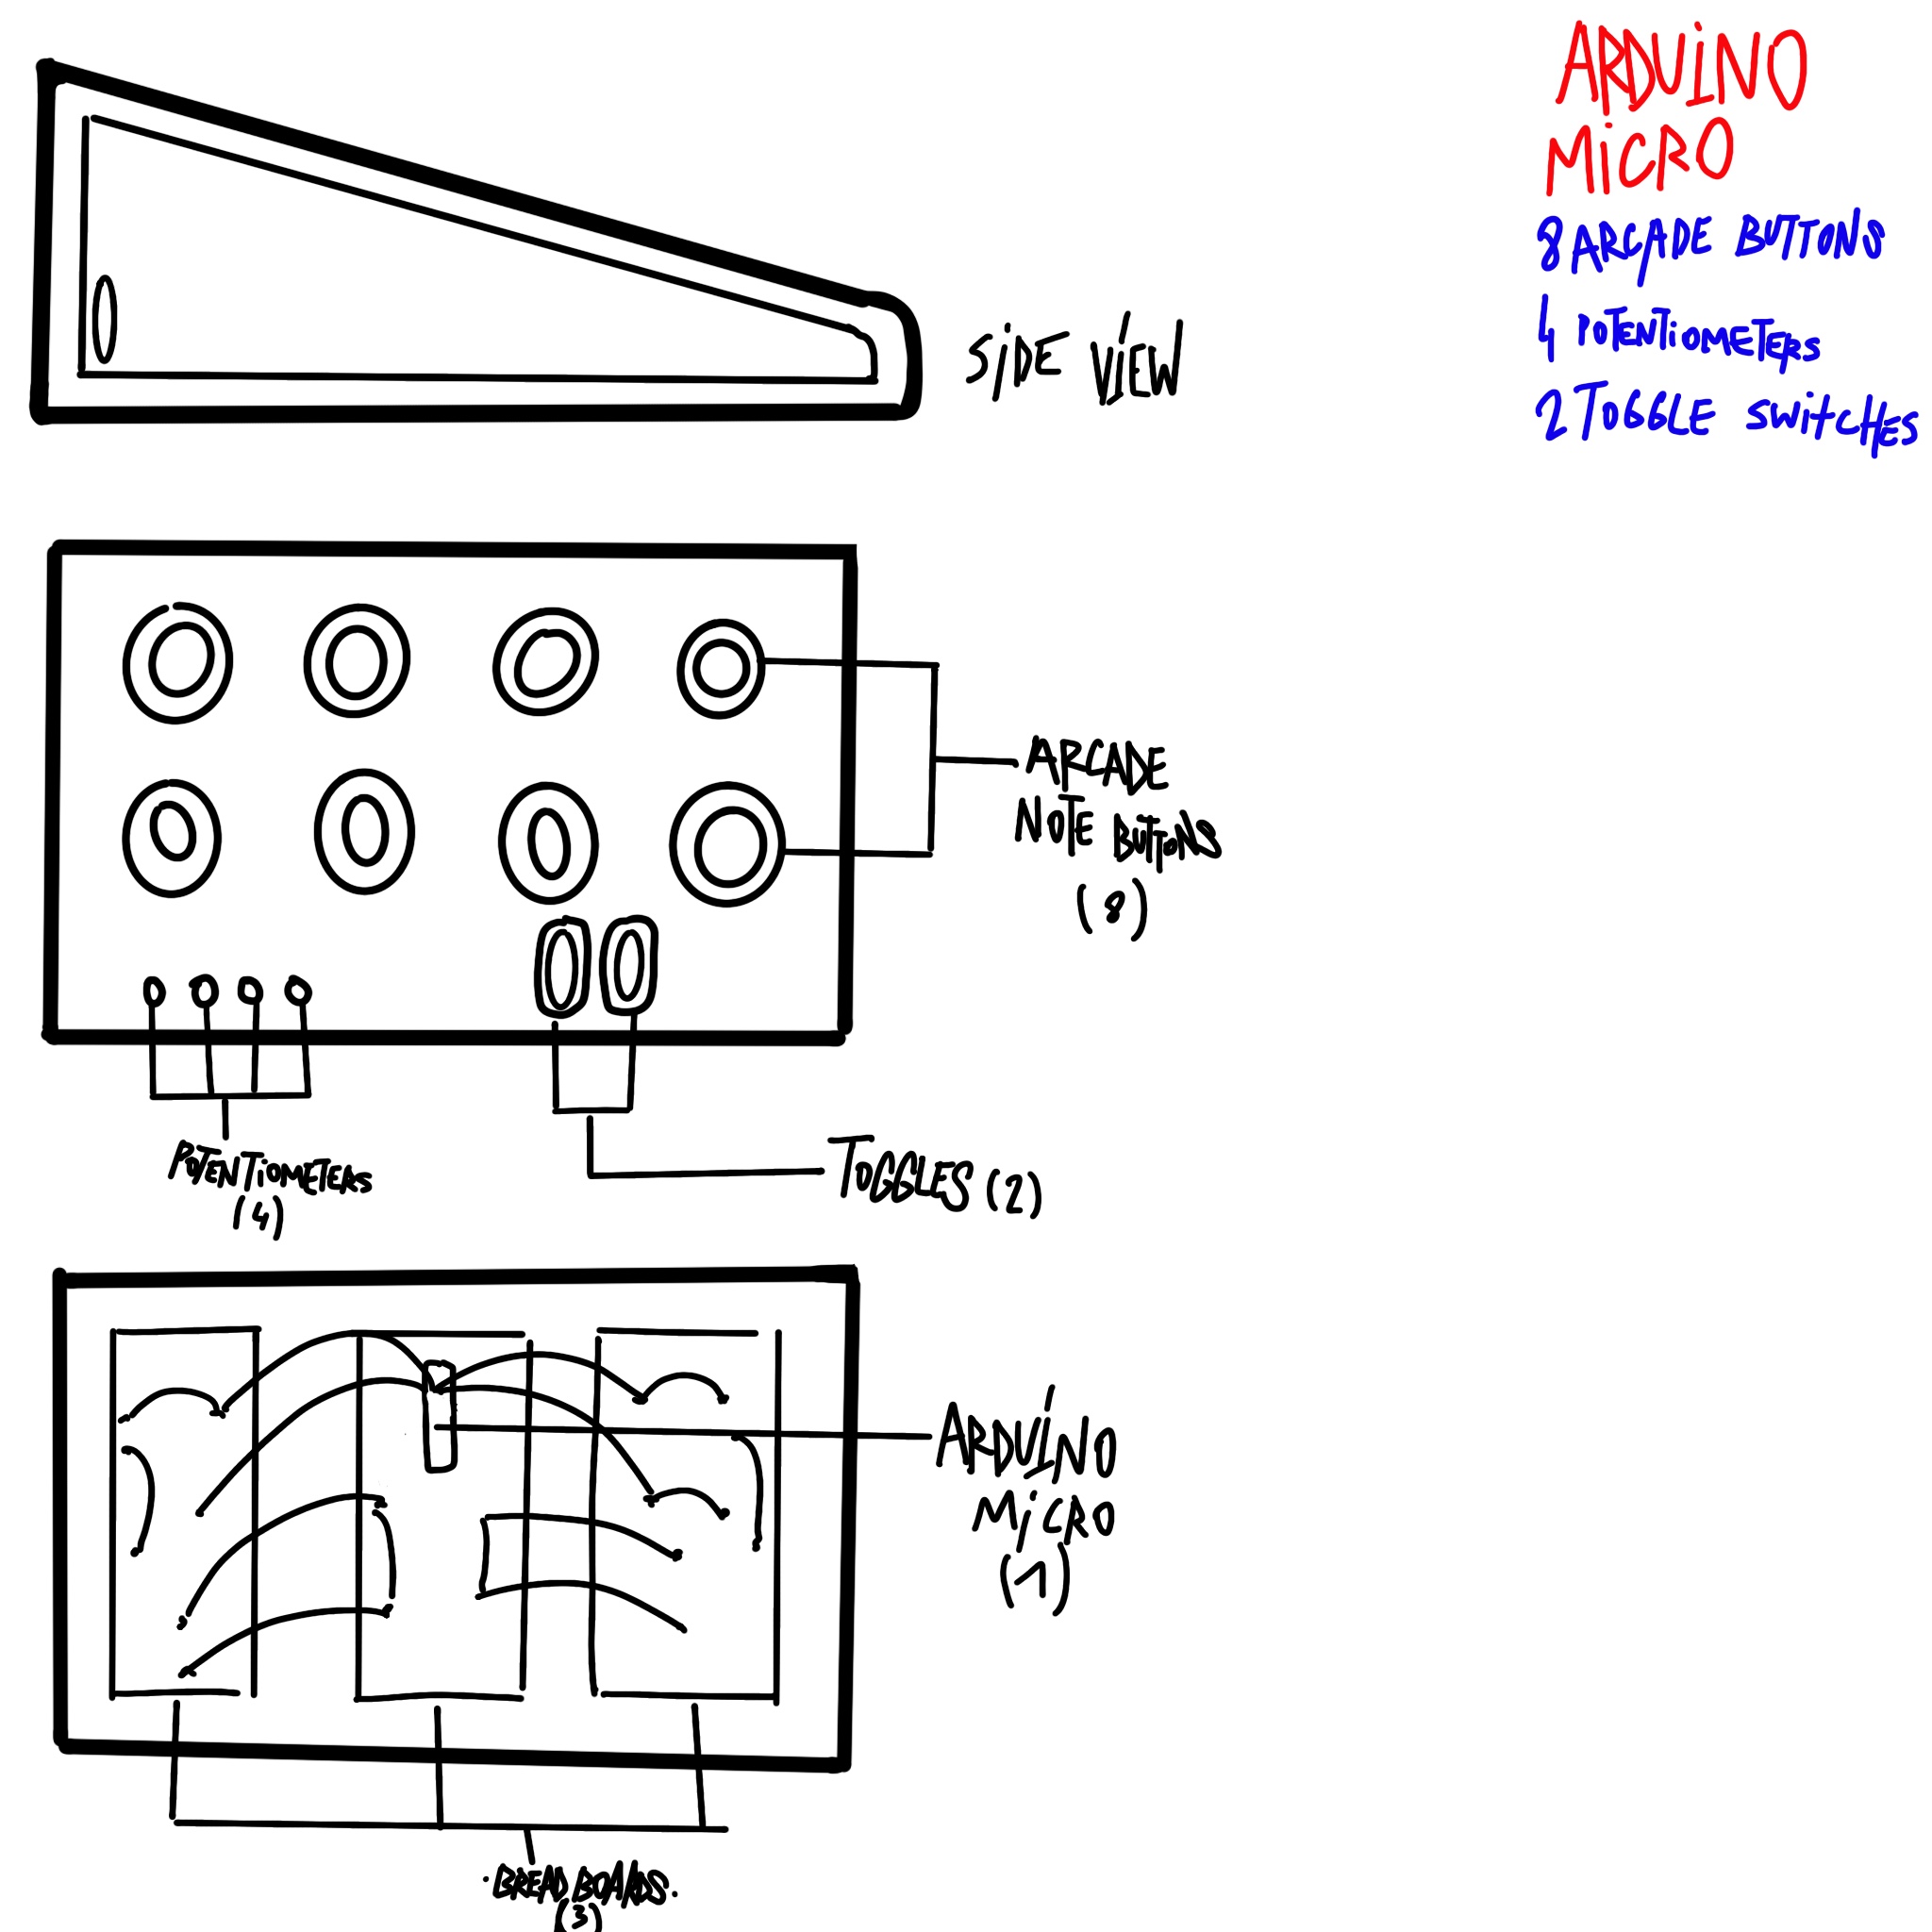 ARDUiNO
MiCRO
8 ARCADE BUTTONS
4 POTENTiOMETERS
2 TOGGLE SWitCHES
SiDE ViEW
ARCADE
NOTE BUTTONS
(8)
POTENTiOMETERS
(4)
TOGGLES (2)
ARDUiNO
MiCRO
(1)
BREAD BOARDS
(3)